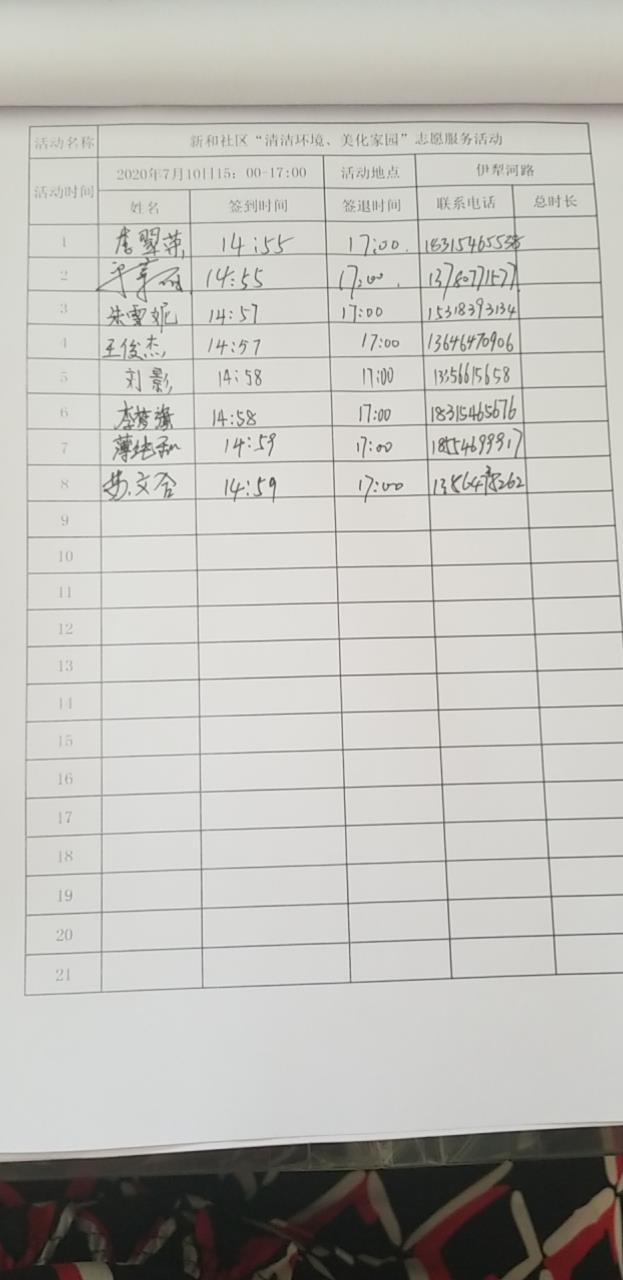 活动名称 新和社区“清洁环境、美化家园”志愿服务活动
活动时间 2020年7月10日15：00-17:00 活动地点 伊犁河路
姓名 签到时间 签退时间 联系电话 总时长
1 14:55 17:00 18315465538
2 14:55 17:00
3 朱雪妮 14:57 17:00 15318393134
4 王俊杰 14:57 17:00 13646470906
5 刘影 14:58 17:00 13356615658
6 14:58 17:00 18315465676
7 14:59 17:00 18554699917
8 14:59 17:00
9
10
11
12
13
14
15
16
17
18
19
20
21